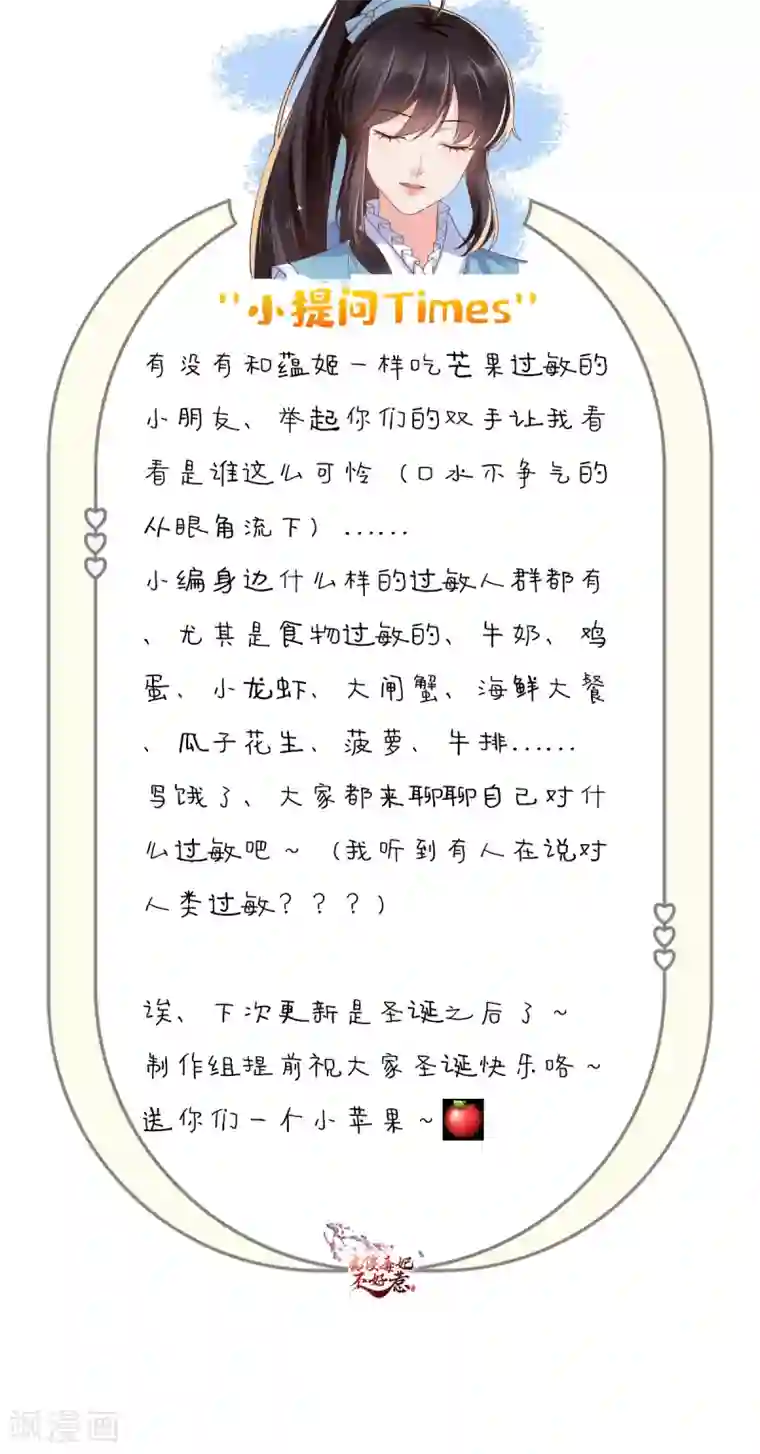 "小提问Times"
有没有和蕴姬一样吃芒果过敏的
小朋友、举起你们的双手让我看
看是谁这么可怜（口水不争气的
从眼角流下）……
小编身边什么样的过敏人群都有
、尤其是食物过敏的、牛奶、鸡
蛋、小龙虾、大闸蟹、海鲜大餐
、瓜子花生、菠萝、牛排……
写饿了、大家都来聊聊自己对什
么过敏吧～（我听到有人在说对
人类过敏？？？）
诶、下次更新是圣诞之后了～
制作组提前祝大家圣诞快乐咯～
送你们一个小苹果～
毒妃
不好惹
飒漫画